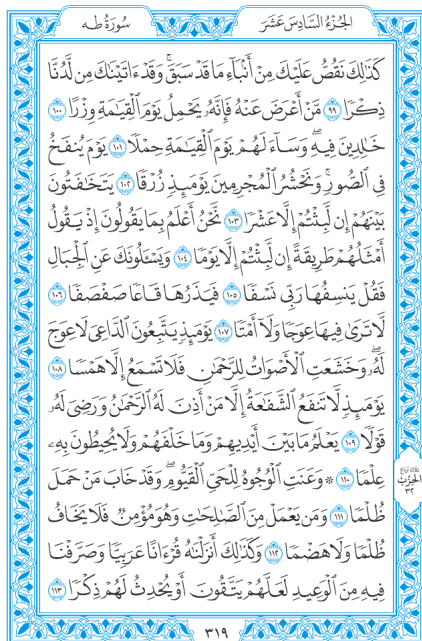 سُورَةُ طه
الجُزْءُ السَّادِسَ عَشَرَ
كَذَٰلِكَ نَقُصُّ عَلَيْكَ مِنْ أَنۢبَآءِ مَا قَدْ سَبَقَۚ وَقَدْ ءَاتَيْنَٰكَ مِن لَّدُنَّا
ذِكْرًا ٩٩ مَّنْ أَعْرَضَ عَنْهُ فَإِنَّهُۥ يَحْمِلُ يَوْمَ ٱلْقِيَٰمَةِ وِزْرًا ١٠٠
خَٰلِدِينَ فِيهِۖ وَسَآءَ لَهُمْ يَوْمَ ٱلْقِيَٰمَةِ حِمْلًا ١٠١ يَوْمَ يُنفَخُ
فِى ٱلصُّورِۚ وَنَحْشُرُ ٱلْمُجْرِمِينَ يَوْمَئِذٍ زُرْقًا ١٠٢ يَتَخَٰفَتُونَ
بَيْنَهُمْ إِن لَّبِثْتُمْ إِلَّا عَشْرًا ١٠٣ نَّحْنُ أَعْلَمُ بِمَا يَقُولُونَ إِذْ يَقُولُ
أَمْثَلُهُمْ طَرِيقَةً إِن لَّبِثْتُمْ إِلَّا يَوْمًا ١٠٤ وَيَسْـَٔلُونَكَ عَنِ ٱلْجِبَالِ
فَقُلْ يَنسِفُهَا رَبِّى نَسْفًا ١٠٥ فَيَذَرُهَا قَاعًا صَفْصَفًا ١٠٦
لَّا تَرَىٰ فِيهَا عِوَجًا وَلَآ أَمْتًا ١٠٧ يَوْمَئِذٍ يَتَّبِعُونَ ٱلدَّاعِىَ لَا عِوَجَ
لَهُۥۖ وَخَشَعَتِ ٱلْأَصْوَاتُ لِلرَّحْمَٰنِ فَلَا تَسْمَعُ إِلَّا هَمْسًا ١٠٨
يَوْمَئِذٍ لَّا تَنفَعُ ٱلشَّفَٰعَةُ إِلَّا مَنْ أَذِنَ لَهُ ٱلرَّحْمَٰنُ وَرَضِىَ لَهُۥ
قَوْلًا ١٠٩ يَعْلَمُ مَا بَيْنَ أَيْدِيهِمْ وَمَا خَلْفَهُمْ وَلَا يُحِيطُونَ بِهِۦ
عِلْمًا ١١٠ ۞ وَعَنَتِ ٱلْوُجُوهُ لِلْحَىِّ ٱلْقَيُّومِۖ وَقَدْ خَابَ مَنْ حَمَلَ
ظُلْمًا ١١١ وَمَن يَعْمَلْ مِنَ ٱلصَّٰلِحَٰتِ وَهُوَ مُؤْمِنٌ فَلَا يَخَافُ
ظُلْمًا وَلَا هَضْمًا ١١٢ وَكَذَٰلِكَ أَنزَلْنَٰهُ قُرْءَانًا عَرَبِيًّا وَصَرَّفْنَا
فِيهِ مِنَ ٱلْوَعِيدِ لَعَلَّهُمْ يَتَّقُونَ أَوْ يُحْدِثُ لَهُمْ ذِكْرًا ١١٣
ثلاثة أرباع
الحزب
٣٢
٣١٩